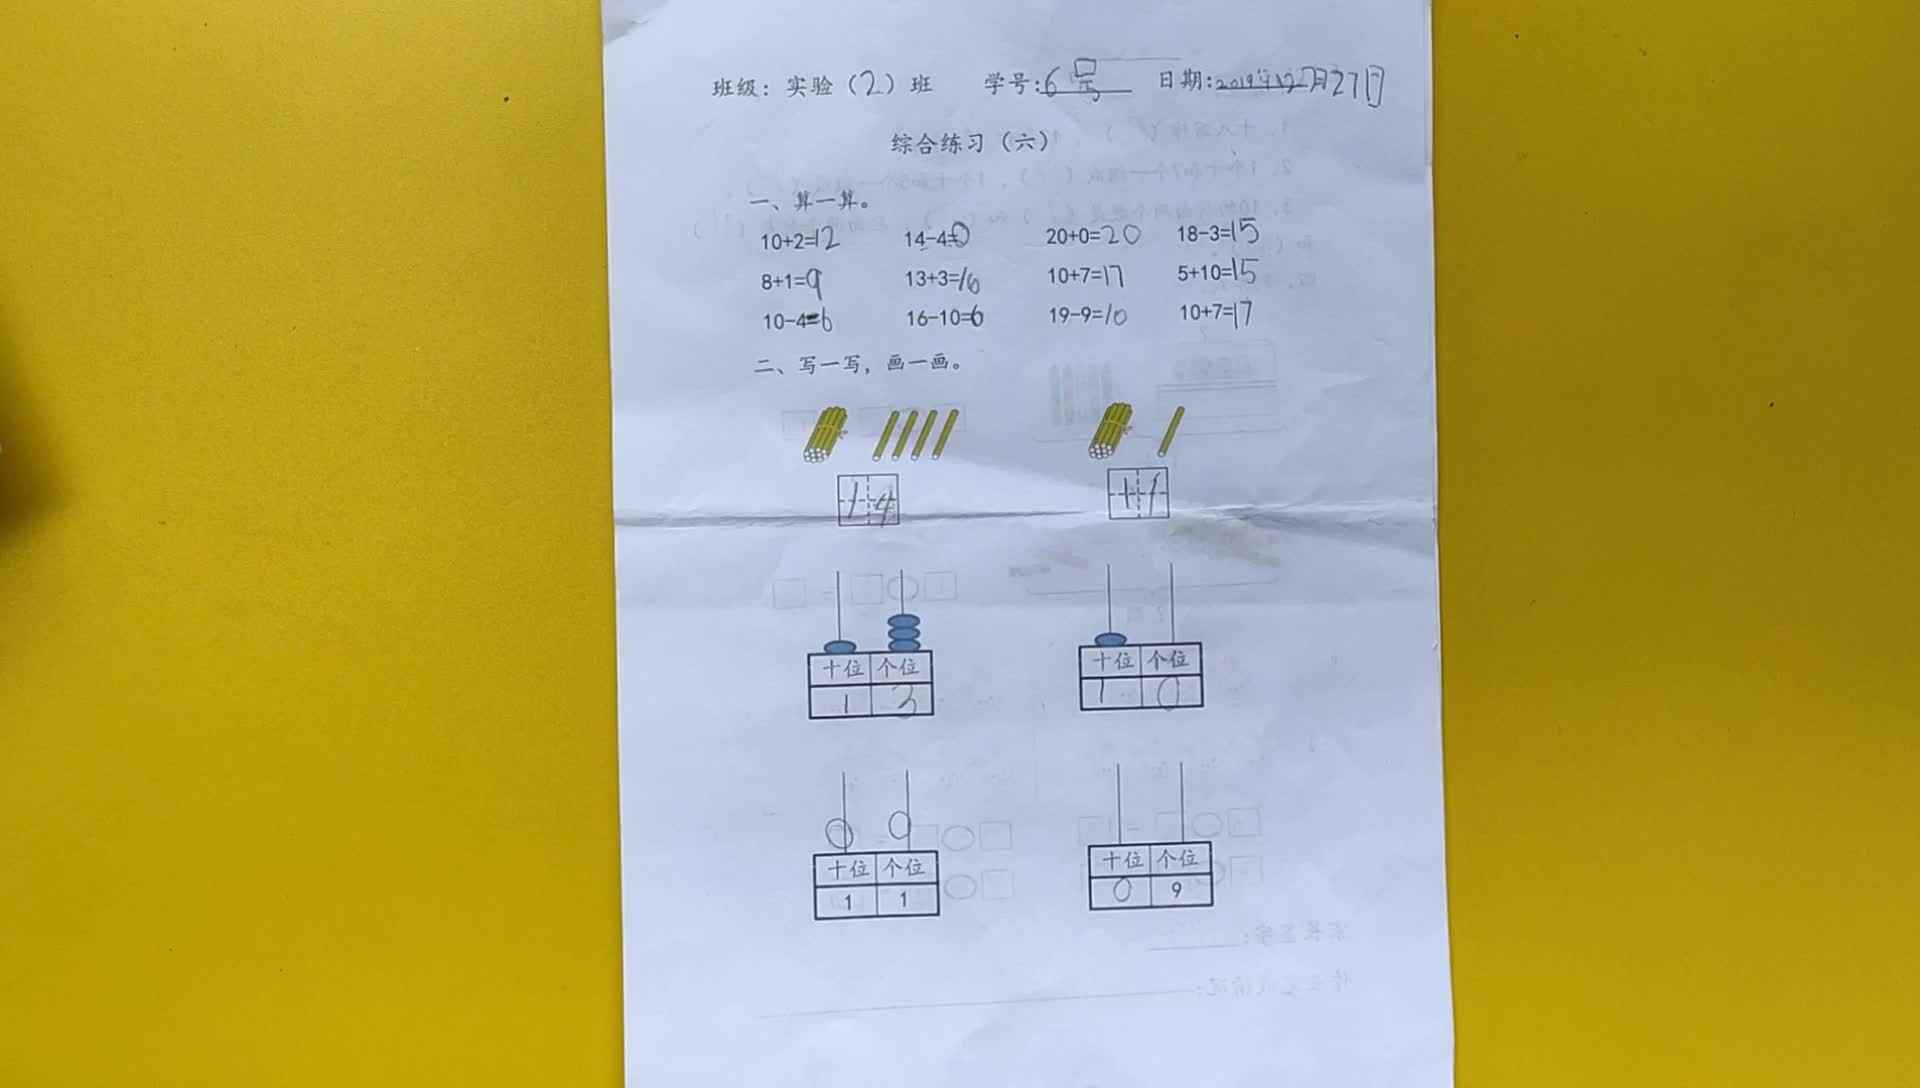 班级：实验（2）班 学号:6号 日期:2019年12月27日
综合练习（六）
一、算一算。
10+2=12 14-4=0 20+0=20 18-3=15
8+1=9 13+3=16 10+7=17 5+10=15
10-4=6 16-10=6 19-9=10 10+7=17
二、写一写，画一画。
14 11
十位 个位 十位 个位
1 3 1 0
十位 个位 十位 个位
1 1 0 9